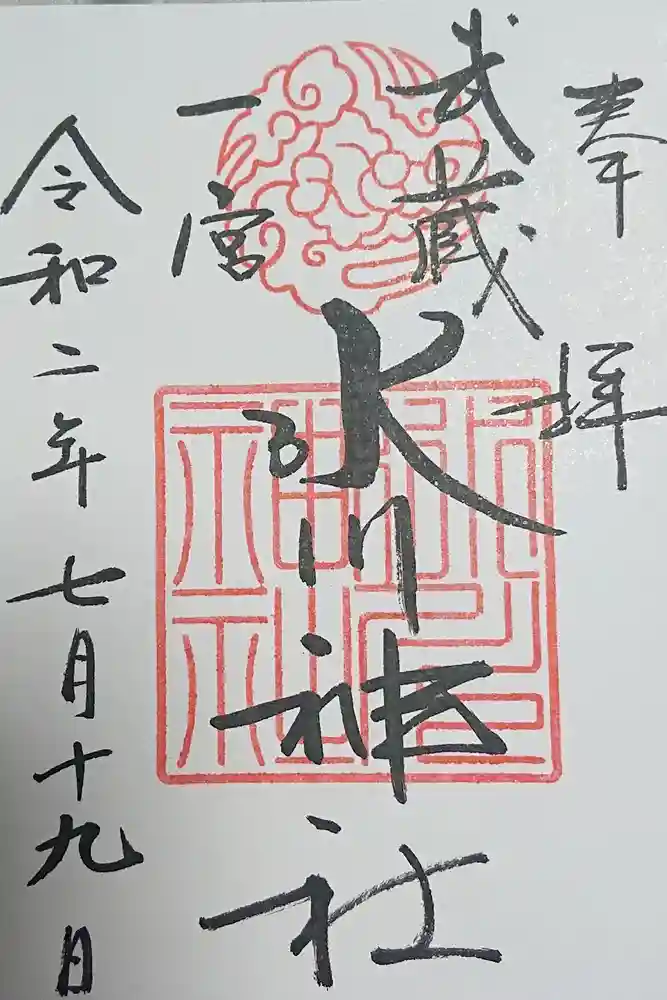 奉拝
武蔵
一宮
氷川神社
令和二年七月十九日